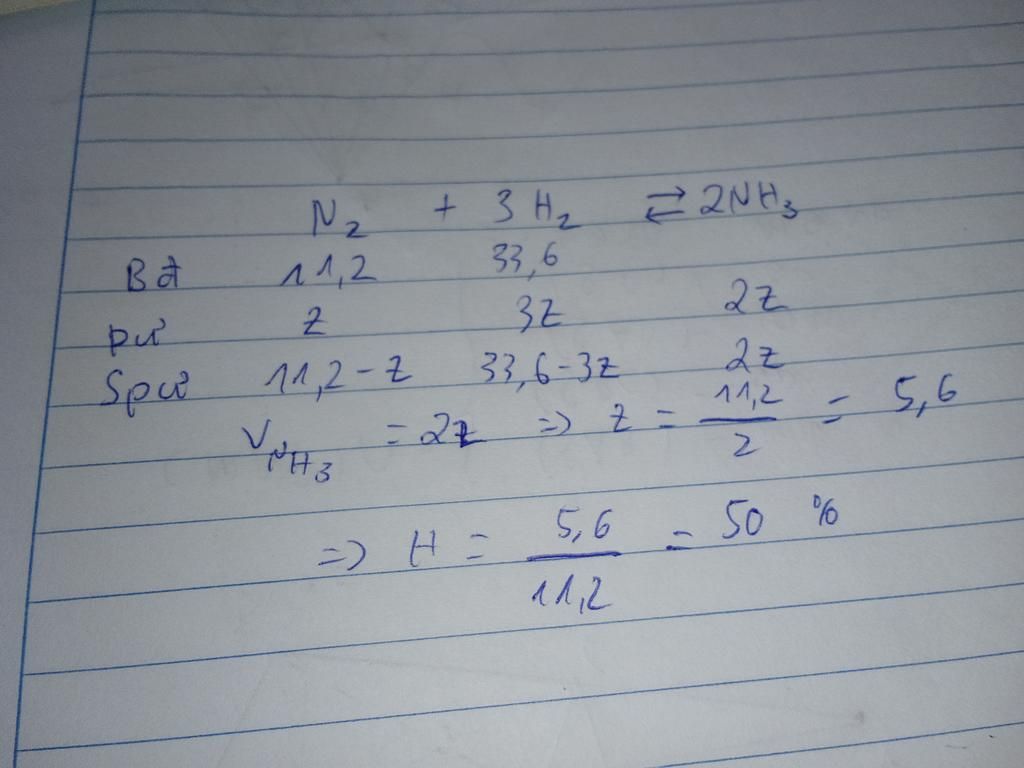 N₂ + 3 H₂ ⇄ 2NH₃
Bđ 11,2 33,6
pứ z 3z 2z
Spứ 11,2 - z 33,6 - 3z 2z
V_NH₃ = 2z => z = 11,2/2 = 5,6
=> H = 5,6/11,2 = 50 %